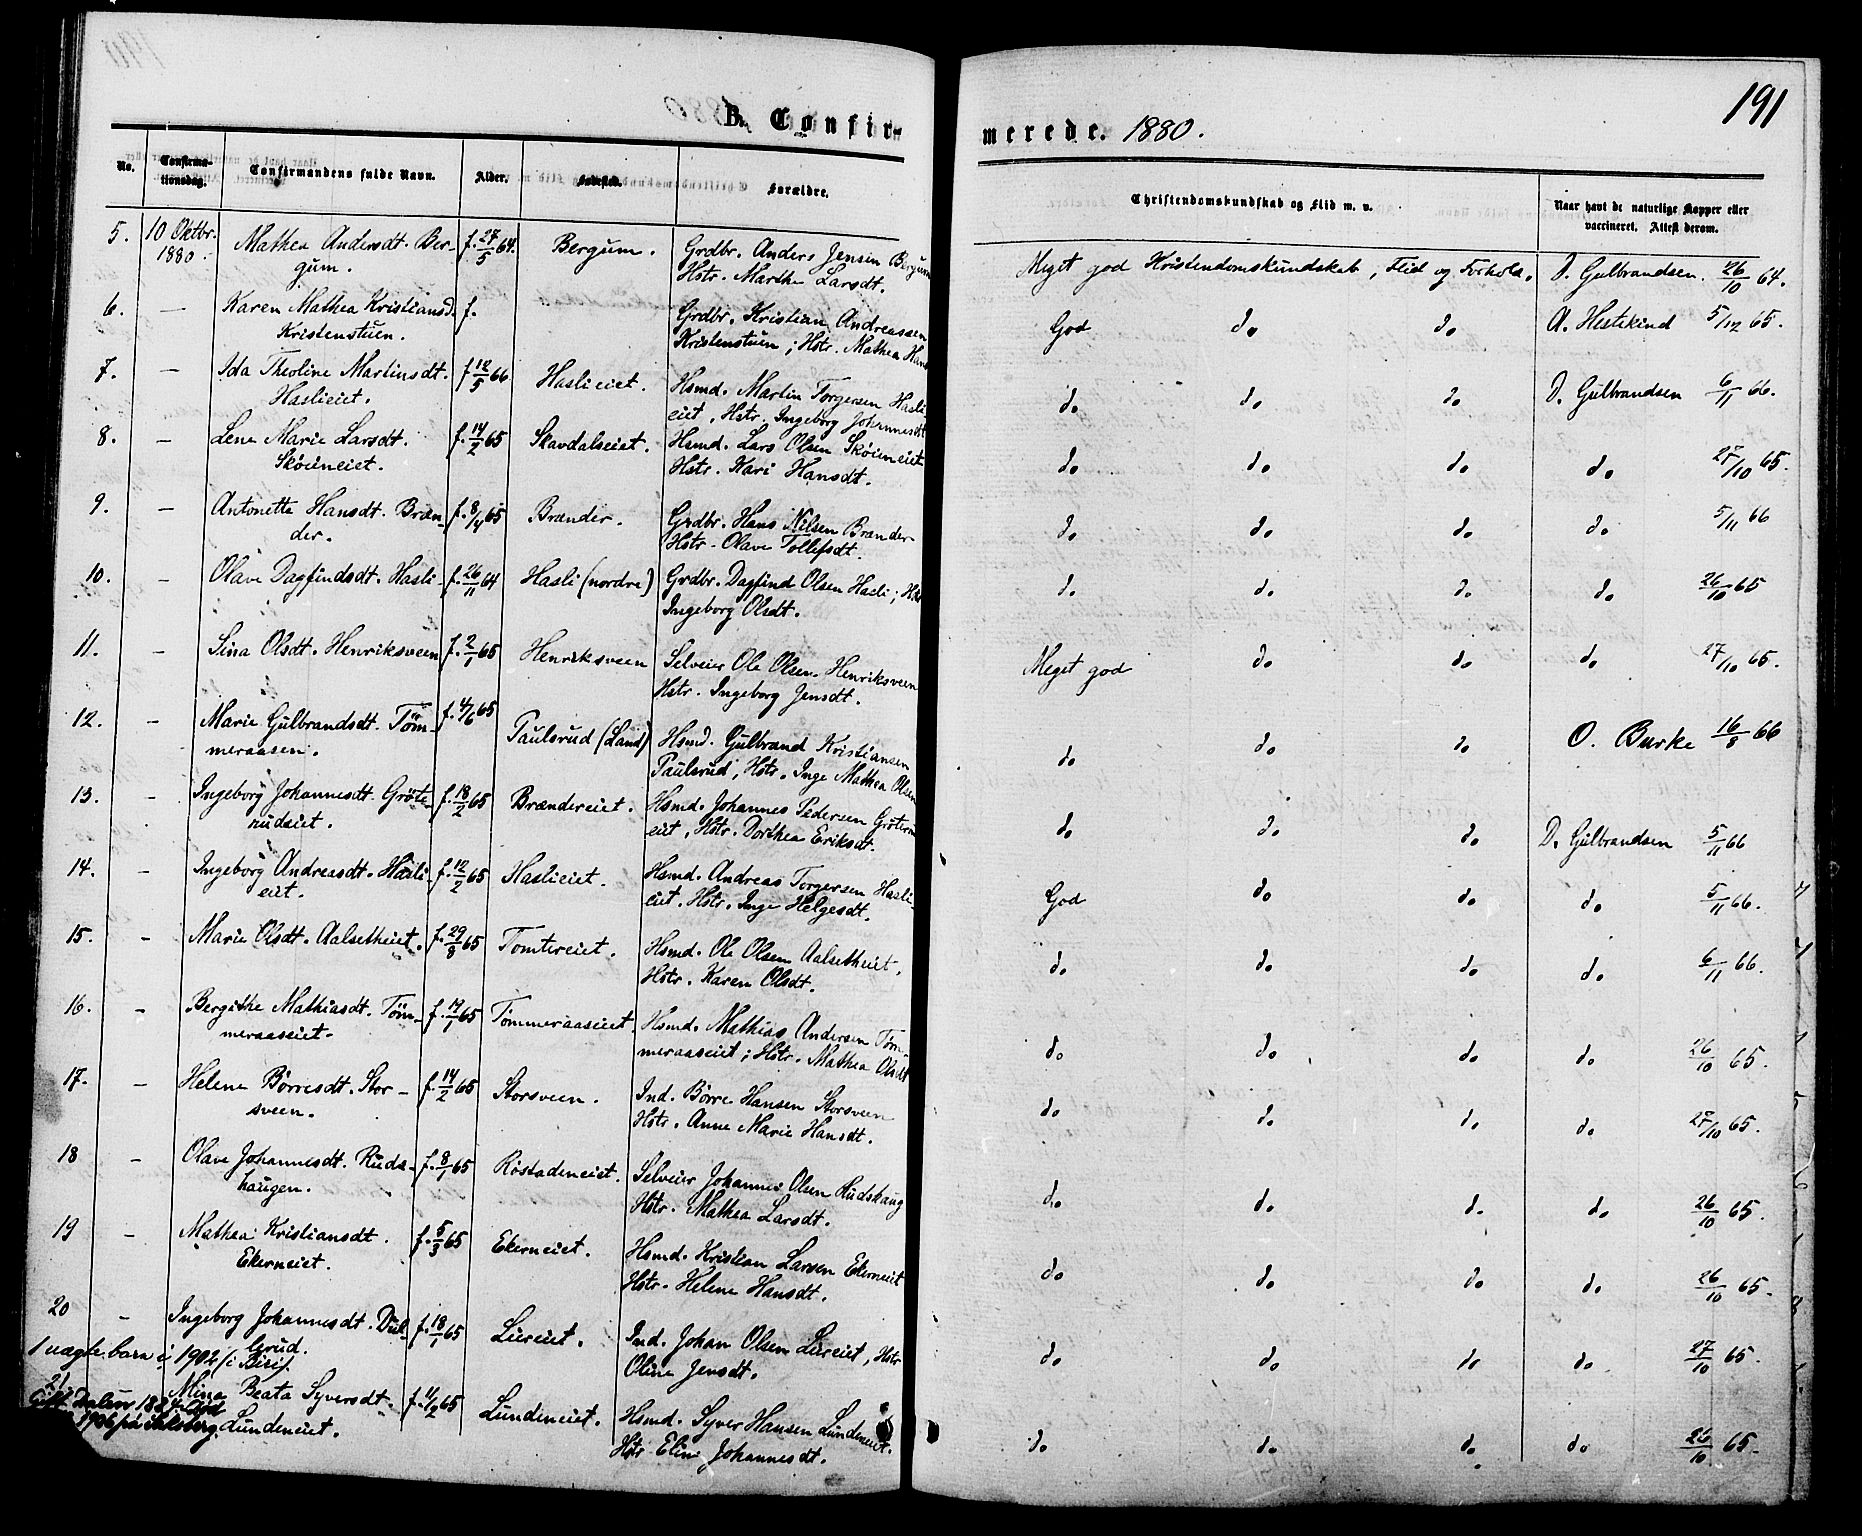 191
B. Confirmerede. 1880.
No. Confirmationsdag. Confirmandens fulde Navn. Alder. Fødested. Forældre. Christendomskundskab og Flid m. v. Naar havt de naturlige Kopper eller vaccineret. Attest derom.
5. 10 Oktbr. 1880. Mathea Andersdt. Ber- f. 27/5 64. Bergum. Grdbr. Anders Jensen Bergum Meget god Kristendomskundskab, Flid og Forhold. D. Gulbrandsen. 26/10 64.
gum. Hstr. Marthe Larsdt.
6. — Karen Mathea Kristiansd. f. Grdbr. Kristian Andreassen God do do A. Hestekind 5/12 65.
Kristenstuen. Kristenstuen; Hstr. Mathea Hans
7. — Ida Theoline Martinsdt. f. 12/5 66 Haslieiet. Hsmd. Martin Torgersen Hasli- do do do D. Gulbrandsen 6/11 66.
Haslieiet. eiet, Hstr. Ingeborg Johannesdt
8. — Lene Marie Larsdt. f. 14/2 65 Skavdalseiet. Hsmd. Lars Olsen Skøieneiet do do do do 27/10 65.
Skøieneiet. Hstr. Kari Hansdt.
9. — Antonette Hansdt. Bræn- f. 8/4 65 Brænder. Grdbr. Hans Nilsen Brænder do do do do 5/11 66
der. Hstr. Olave Tollefsdt.
10. — Olave Dagfindsdt. Hasli f. 26/11 64 Hasli (nordre) Grdbr. Dagfind Olsen Hasli; Hstr do do do do 26/10 65
Ingeborg Olsdt.
11. — Sina Olsdt. Henriksveen f. 2/1 65 Henriksveen Selveier Ole Olsen Henriksveen Meget god do do do 27/10 65.
Hstr. Ingeborg Jensdt.
12. — Marie Gulbrandsdt. Töm- f. 4/6 65 Paulsrud (Land) Hsmd. Gulbrand Kristiansen do do do O. Burke 16/8 66
meraasen. Paulsrud, Hstr. Inge Mathea Olsen
13. — Ingeborg Johannesdt. Gröte- f. 18/2 65 Brændereiet. Hsmd. Johannes Pedersen Gröterud do do do D. Gulbrandsen 5/11 66
rudseiet. eiet, Hstr. Dorthea Eriksdt.
14. — Ingeborg Andreasdt. Hasli- f. 12/2 65 Haslieiet. Hsmd. Andreas Torgersen Hasli- God do do do 5/11 66.
eiet. eiet. Hstr. Inge Helgesdt.
15. — Marie Olsdt. Aalsetheiet. f. 29/8 65 Tomtereiet. Hsmd. Ole Olsen Aalsetheiet. do do do do 6/11 66.
Hstr. Karen Olsdt.
16. — Bergithe Mathiasdt. Töm- f. 17/1 65 Tömmeraaseiet. Hsmd. Mathias Andersen Töm- do do do do 26/10 65.
meraaseiet. meraaseiet; Hstr. Mathea Olsdt
17. — Helene Börresdt. Stor- f. 14/2 65 Storsveen. Ind. Börre Hansen Storsveen do do do do 27/10 65.
sveen. Hstr. Anne Marie Hansdt.
18 — Olave Johannesdt. Ruds- f. 8/1 65 Röstadeneiet. Selveier Johannes Olsen Rudshaug do do do do 26/10 65.
haugen. Hstr. Mathea Larsdt.
19 — Mathea Kristiansdt. f. 5/3 65 Ekerneiet. Hsmd. Kristian Larsen Ekerneiet do do do do 26/10 65.
Ekerneiet. Hstr. Helene Hansdt.
20 — Ingeborg Johannesdt. Dul- f. 18/1 65 Lureiet. Ind. Johan Olsen Lureiet, Hstr do do do do 27/10 65.
serud. Oline Jensdt.
1 uægte barn i 1902 (i Biri).
21. Mina Beata Syversdt. f. 11/2 65 Lundeneiet. Hsmd. Syver Hansen Lundeneiet. do do do do 26/10 65.
Lundeneiet. Hstr Eline Johannesdt.